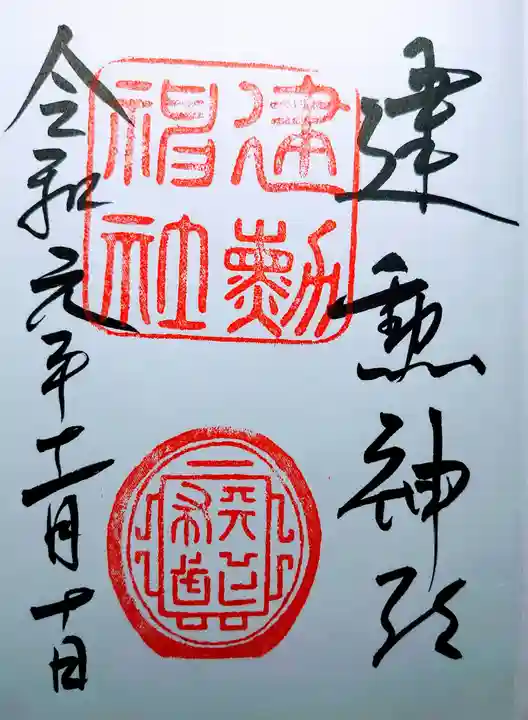 建勲神社
建勲
神社
令和元年十一月十日